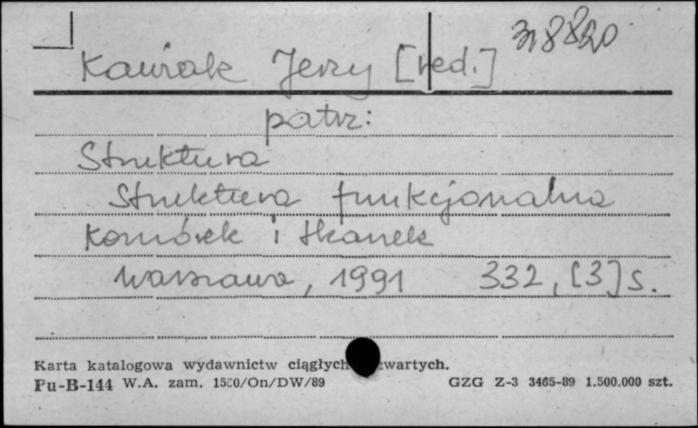 318820
Kawiak Jerzy [red.]
patrz:
Struktura
Struktura funkcjonalna
komórek i tkanek
Warszawa, 1991 332, [3] s.
Karta katalogowa wydawnictw ciągłych zwartych.
Pu-B-144 W.A. zam. 1580/On/DW/89 GZG Z-3 3465-89 1.500.000 szt.